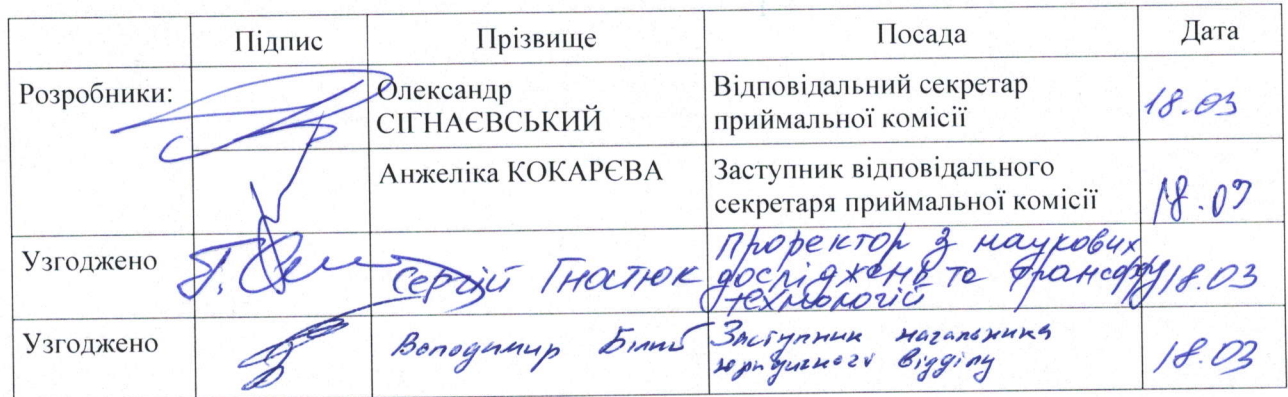 Підпис Прізвище Посада Дата
Розробники: Олександр Відповідальний секретар
СІГНАЄВСЬКИЙ приймальної комісії 18.03
Анжеліка КОКАРЄВА Заступник відповідального
секретаря приймальної комісії 18.03
Узгоджено Сергій Гнатюк проректор з наукових
досліджень та трансферу 18.03
технологій
Узгоджено Володимир Білик Заступник начальника
юридичного відділу 18.03